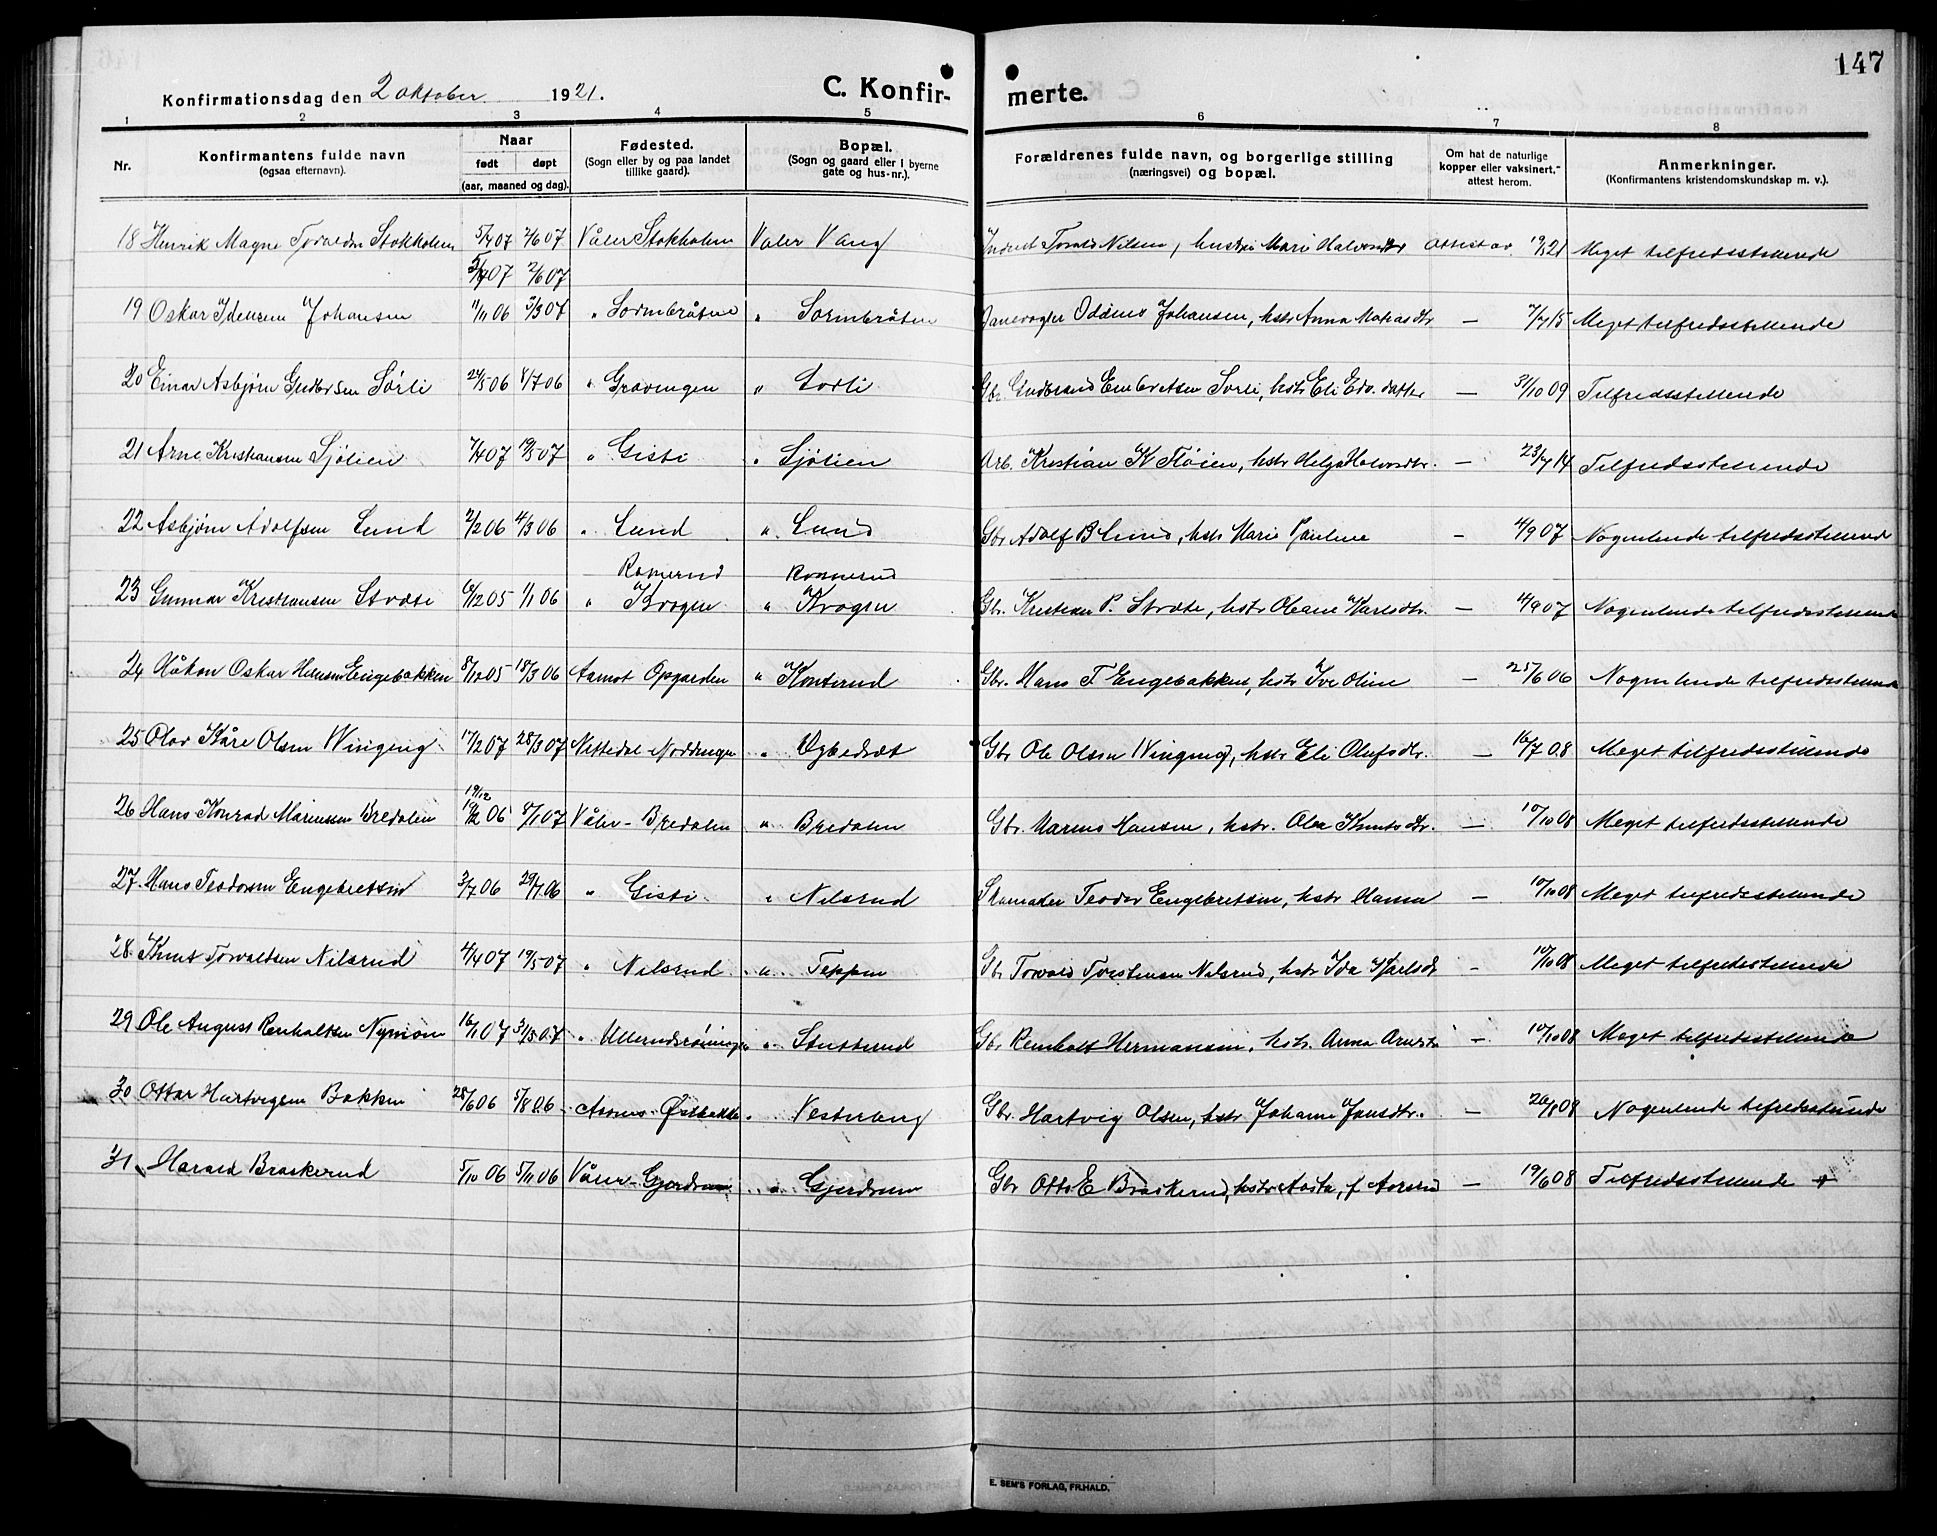 147
Konfirmationsdag den 2 oktober 1921.
C. Konfirmerte.
1 2 3 4 5 6 7 8
Nr.
Konfirmantens fulde navn
(ogsaa efternavn).
Naar
født døpt
(aar, maaned og dag).
Fødested.
(Sogn eller by og paa landet
tillike gaard).
Bopæl.
(Sogn og gaard eller i byerne
gate og hus-nr.).
Forældrenes fulde navn, og borgerlige stilling
(næringsvei) og bopæl.
Om hat de naturlige
kopper eller vaksinert,
attest herom.
Anmerkninger.
(Konfirmantens kristendomskundskap m. v.).
18 Henrik Magne Stokholm 5/4 07 2/6 07 Våler Stokholm Valer Vang Nilsen, hustru Mari attest av 19/5 21 Meget tilfredsstillende
5/4 07 2/6 07
19 Oskar Johansen 11/11 06 3/3 07 " Sormbråten " Sormbråten Oddmo Johansen, hstr Anna — 7/7 15 Meget tilfredsstillende
20 Einar Asbjørn Sörli 24/5 06 8/7 06 " Gravingen " Sorli Gbr. Gudbrand Sorli, hstr Eli Edv. datter — 31/10 09 Tilfredsstillende
21 Arne Kristiansen Sjölien 7/4 07 19/5 07 " Gisti " Sjölien Arb. Kristian K Flöien, hstr Helga Halvorsdtr. — 23/7 14 Tilfredsstillende
22 Asbjörn Adolfsen Lund 2/2 06 4/3 06 " Lund " Lund Gbr Adolf B Lund, hstr Marie Pauline — 4/9 07 Nogenlunde tilfredsstillende
Romerud Romerud
23 Gunnar Kristiansen Stræte 6/12 05 1/1 06 " Krogen " Krogen Gbr. Kristian P. Stræte, hstr Oleane Karlsdtr. — 4/9 07 Nogenlunde tilfredsstillende
24 Håkon Oskar Hansen Engebakken 8/12 05 18/3 06 Aamot Opgarden " Konterud Gbr. Hans T. Engebakken, hstr Ive Oline — 25/6 06 Nogenlunde tilfredsstillende
25 Olav Kåre Olsen Wingeng 17/2 07 28/3 07 " Gbr Ole Olsen Wingeng, hstr Eli Olufsdtr. — 16/7 08 Meget tilfredsstillende
19/12
26 Hans Konrad Mariussen Bredalen 19/12 06 8/1 07 Våler - Bredalen " Bredalen Gbr. Marius Hansen, hstr. Olea Knutsdtr. — 10/10 08 Meget tilfredsstillende
27. Hans Teodorsen Engebretsen 3/7 06 29/7 06 " Gisti " Nilsrud Skomaker Teodor Engebretsen, hstr Hanna — 10/10 08 Meget tilfredsstillende
28. Knut Torvaldsen Nilsrud 4/4 07 19/5 07 " Nilsrud " Teppen Gbr Torvald Nilsrud, hstr Ida Karlsdt — 10/10 08 Meget tilfredsstillende
29 Ole August Renholtsen Nymoen 16/1 07 31/5 07 " Ullerudsröningen " Stutterud Gbr Reinholt Hermansen, hstr. Anna — 10/10 08 Meget tilfredsstillende
30 Ottar Hartvigsen Bakken 28/6 06 5/8 06 Aasnes - Østbakke " Vesterberg Gbr. Hartvig Olsen, hstr Johanne Jensdtr. — 26/8 08 Nogenlunde tilfredsstillende
31 Harald Braskerud 5/10 06 5/11 06 Våler - Gjerdrum " Gjerdrum Gbr Otto E Braskerud, hstr Aasta, f. Aasrud — 19/6 08 Tilfredsstillende +
E. SEM'S FORLAG, FR.HALD.